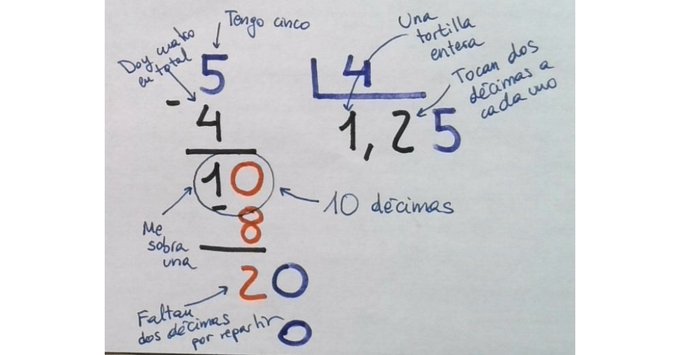 Tengo cinco
Doy cuatro
en total
5
- 4
10
- 8
20
0
Me
sobra
una
10 décimas
Faltan
dos décimas
por repartir
4
1,25
Una
tortilla
entera
Tocan dos
décimas a
cada uno